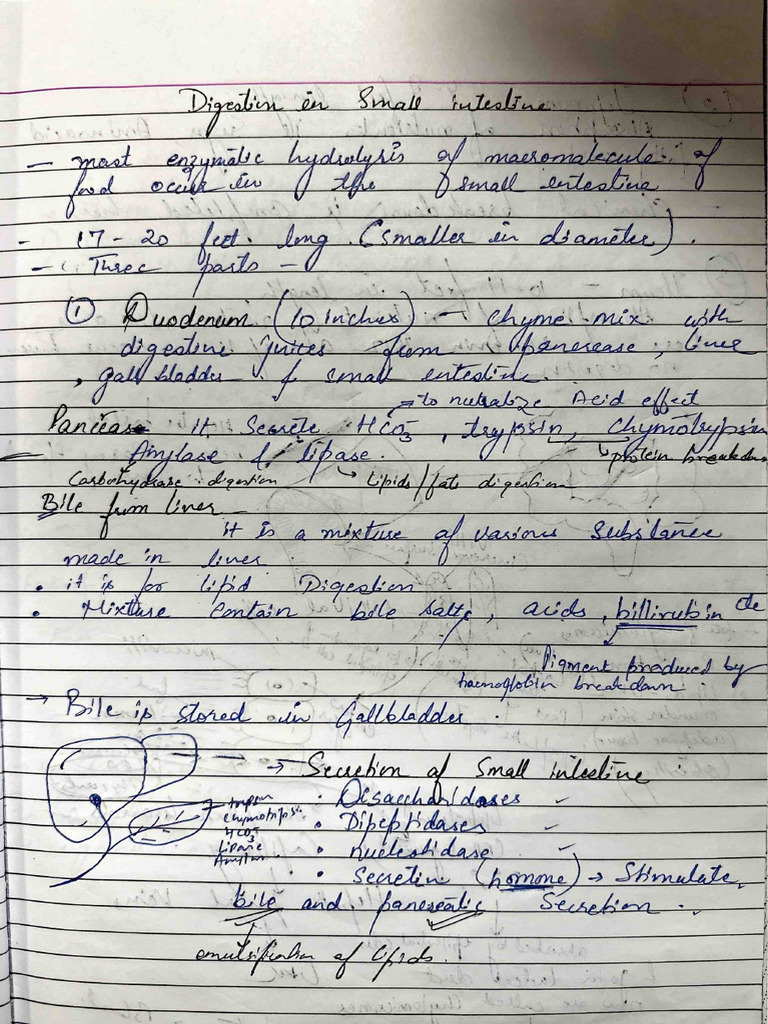 Digestion in Small intestine
- most enzymatic hydrolysis of macromolecule of
food occur in the small intestine
- 17-20 feet long (smaller in diameter).
- Three parts -
① Duodenum (10 inches) - chyme mix with
digestive juices from pancrease, liver
, gall bladder & small intestine.
→ to nutralize Acid effect
Pancreas it Secrete HCO3⁻, trypsin, chymotrypsin
Amylase & lipase. ↳ protein breakdown
Carbohydrase digestion ↳ Lipids/fats digestion
Bile from liver -
it is a mixture of various substance
made in liver
• it is for lipid Digestion
• Mixture contain bile salts, acids, billirubin etc
Pigment produced by
haemoglobin breakdown.
→ Bile is stored in Gallbladder.
→ Secretion of Small intestine
trypsin • Disaccharidases ✓
chymotrips. • Dipeptidases ✓
HCO3 • nucleotidase ✓
Lipase
Amylase • Secretin (homone) → Stimulate
bile and pancreatic Secretion.
emulsification of lipids.